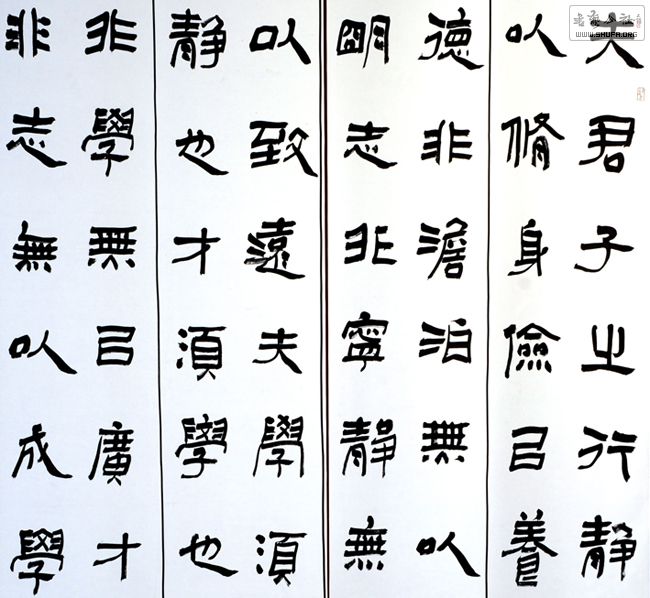 夫君子之行静
以脩身儉㠯養
德非澹泊無以
明志非寧静無
以致遠夫學須
静也才須學也
非學無㠯廣才
非志無以成學
WWW.SHUFA.ORG